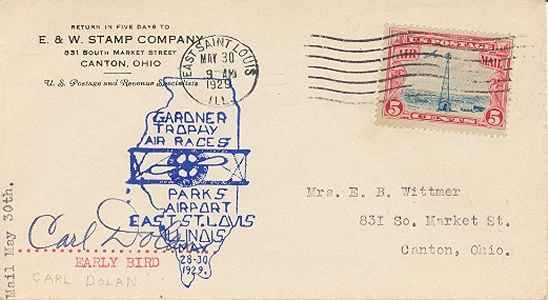 RETURN IN FIVE DAYS TO
E. & W. STAMP COMPANY
831 SOUTH MARKET STREET
CANTON, OHIO
U. S. Postage and Revenue Specialists
EAST SAINT LOUIS
MAY 30
9 AM
1929
ILL.
U.S. POSTAGE
AIR MAIL
5 CENTS 5
GARDNER
TROPHY
AIR RACES
PARKS
AIRPORT
EAST ST. LOUIS
ILLINOIS
MAY
28-30
1929.
Mrs. E. B. Wittmer
831 So. Market St.
Canton, Ohio.
Mail May 30th.
Carl Dolan
EARLY BIRD
CARL DOLAN